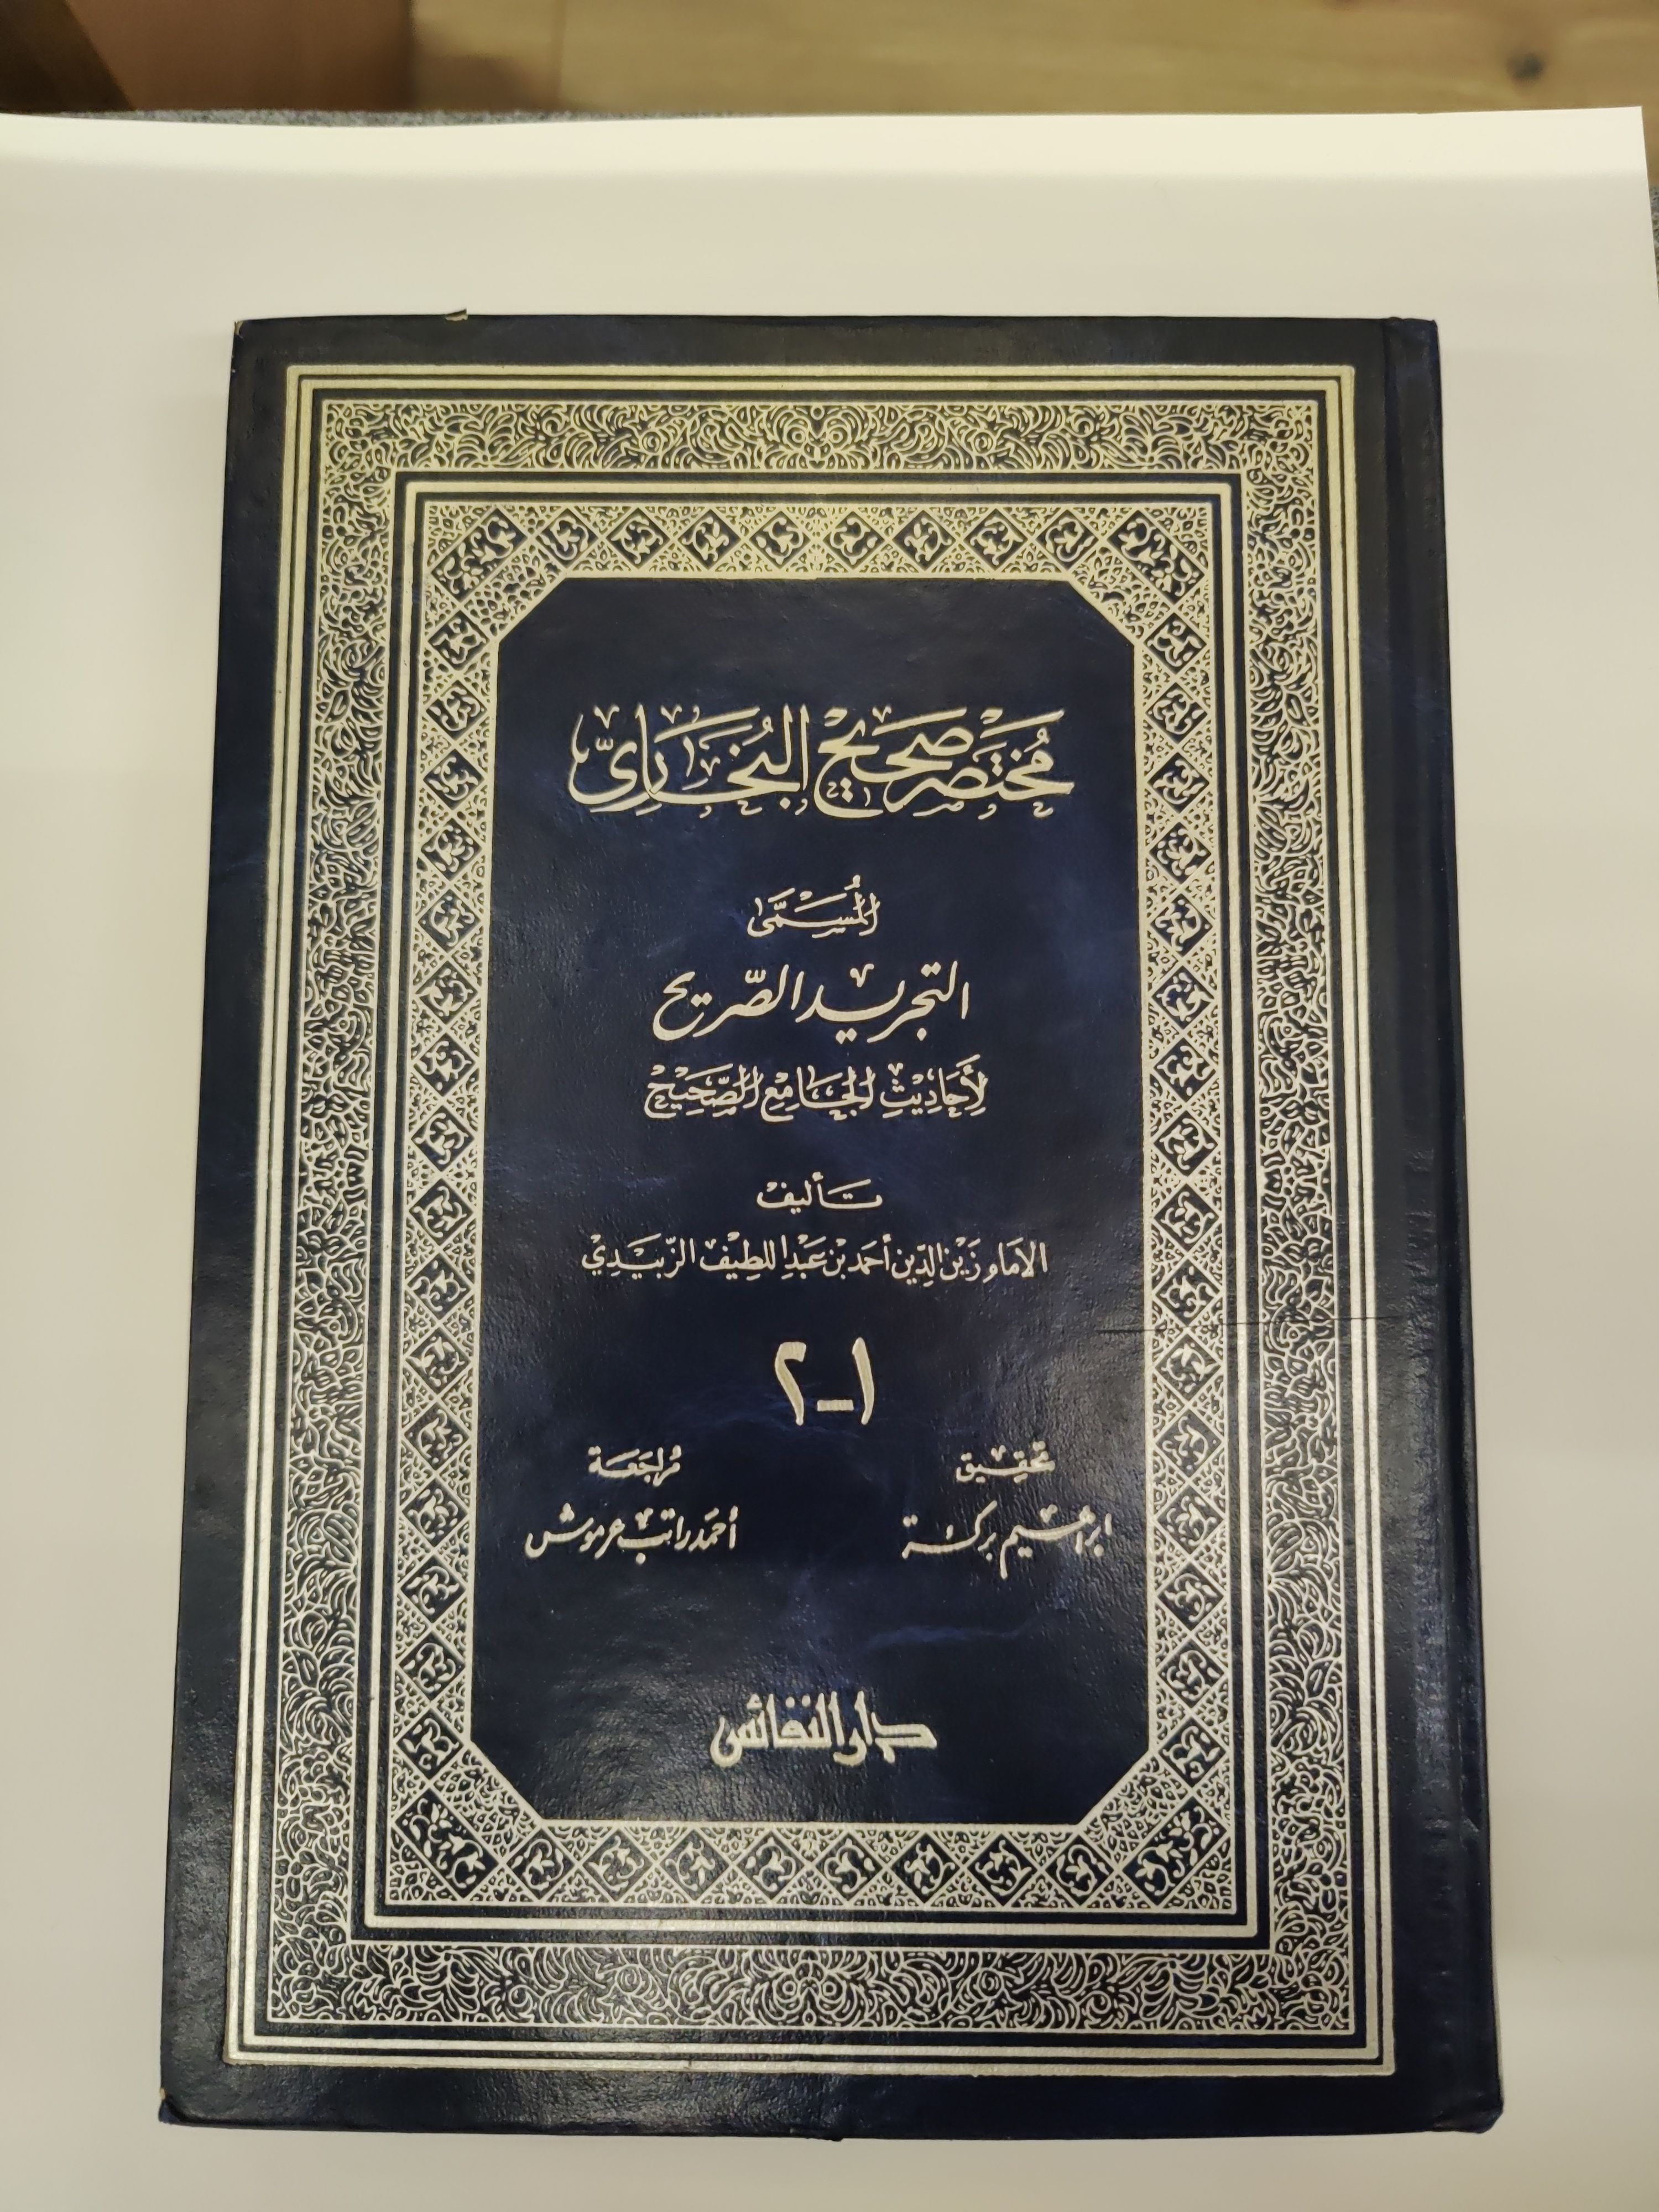 مُخْتَصَر صَحِيحِ البُخَارِيّ
المُسَمَّى
التجريد الصّريح
لِأَحَادِيثِ الجَامِعِ الصَّحِيحِ
تَأليف
الامَام زَيْن الدِّين أَحمَد بْن عَبْدِ اللطِيْف الزَّبِيْدِيْ
١-٢
تحقِيق
ابراهيم بركة
مُراجَعَة
أحمَد راتب عرموش
دار النفائس